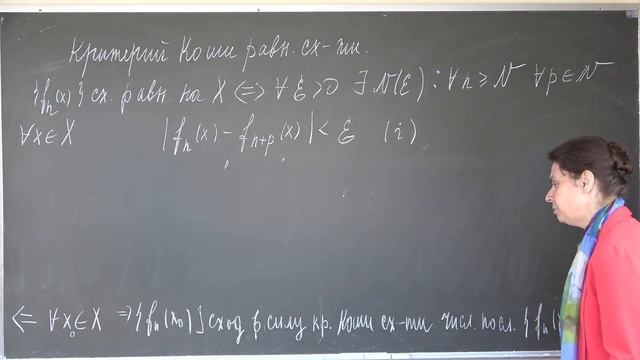 Критерий Коши равн. сх-ти.
{fₙ(x)} сх. равн. на X <=> ∀ ε > 0 ∃ N(ε) : ∀ n ≥ N ∀ p ∈ N
∀x ∈ X |fₙ(x) - fₙ₊ₚ(x)| < ε (i)
<= ∀ x₀ ∈ X => {fₙ(x₀)} сход. в силу кр. Коши сх-ти числ. посл. {fₙ(